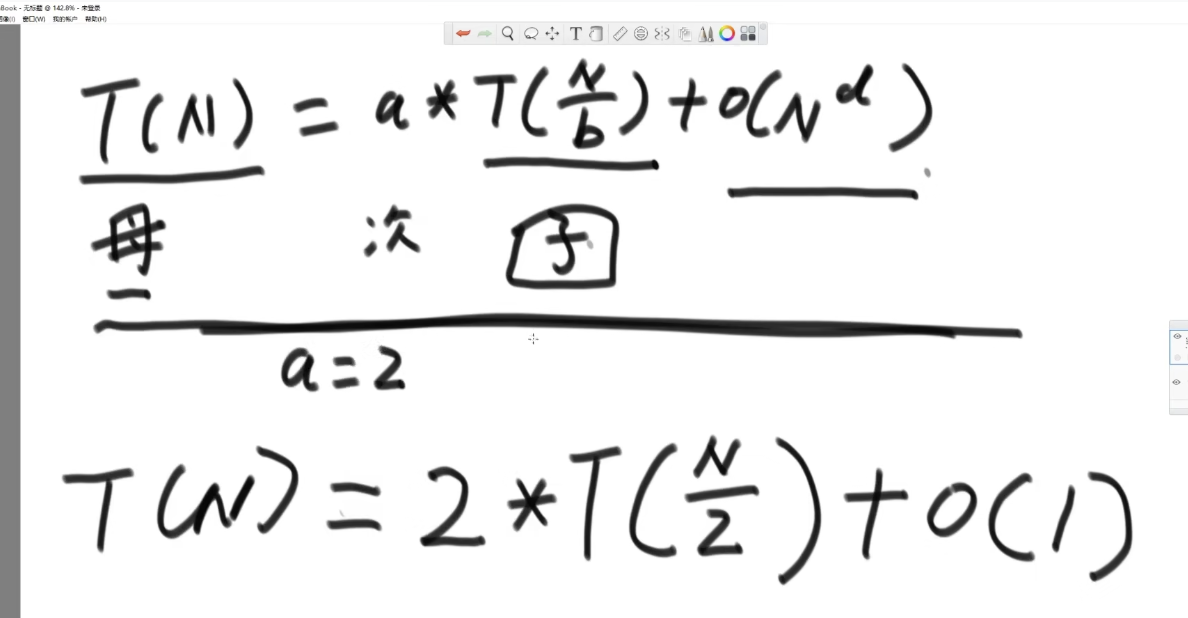 Book - 无标题 @ 142.8% - 未登录
像(I) 窗口(W) 我的帐户 帮助(H)
T
T(N) = a * T(N/b) + O(N^d)
母 次 子
a = 2
T(N) = 2 * T(N/2) + O(1)